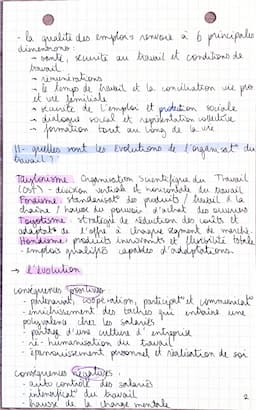 - la qualité des emplois renvoie à 6 principales
dimensions :
→ santé, sécurité au travail et conditions de
travail
→ rémunérations
→ le temps de travail et la conciliation vie pro
et vie familiale
→ sécurité de l'emploi et protection sociale
→ dialogue social et représentation collective
→ formation tout au long de la vie
II - quelles sont les évolutions de l'organisat° du
travail ?
Taylorisme : Organisation Scientifique du Travail
(OST) - division verticale et horizontale du travail
Fordisme : standardisat° des produits / travail à la
chaîne / hausse du pouvoir d'achat des ouvriers
Toyotisme : stratégie de réduction des coûts et
adaptat° de l'offre à chaque segment de marché.
Hondisme : produits innovants et flexibilité totale
- emplois qualifiés capables d'adaptations.
→ l'évolution
conséquences positives :
- partenariat, coopération, participat° et communicat°
- enrichissement des tâches qui entraîne une
polyvalence chez les salariés
- partage d'une culture d'entreprise
- ré-humanisation du travail
- épanouissement personnel et réalisation de soi
conséquences négatives :
- auto contrôle des salariés
- intensificat° du travail
- hausse de la charge mentale
2